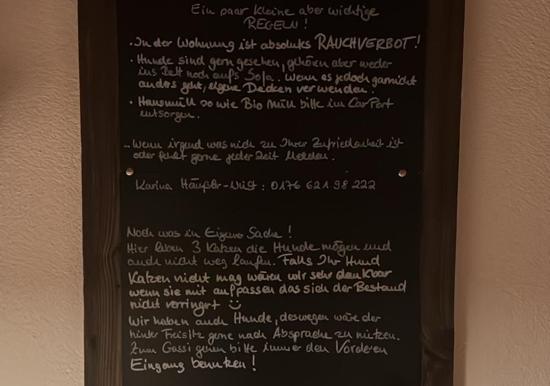 Ein paar kleine aber wichtige
REGELN!
• In der Wohnung ist absolutes RAUCHVERBOT!
• Hunde sind gern gesehen, gehören aber weder
ins Bett noch aufs Sofa. Wenn es jedoch garnicht
anders geht, eigene Decken verwenden.
• Hausmüll so wie Bio Müll bitte im CarPort
entsorgen.
... Wenn irgend was nich zu Ihrer Zufriedenheit ist
oder fehlt gerne jeder Zeit Melden.
Karina Häußler-Wüst: 0176 621 98 222
Noch was in Eigener Sache!
Hier leben 3 Katzen die Hunde mögen und
auch nicht weg laufen. Falls Ihr Hund
Katzen nicht mag wären wir sehr dankbar
wenn sie mit aufpassen das sich der Bestand
nicht verringert
Wir haben auch Hunde, deswegen wäre der
hinter Freisitz gerne nach Absprache zu nutzen.
Zum Gassi gehen bitte immer den Vorderen
Eingang benutzen!